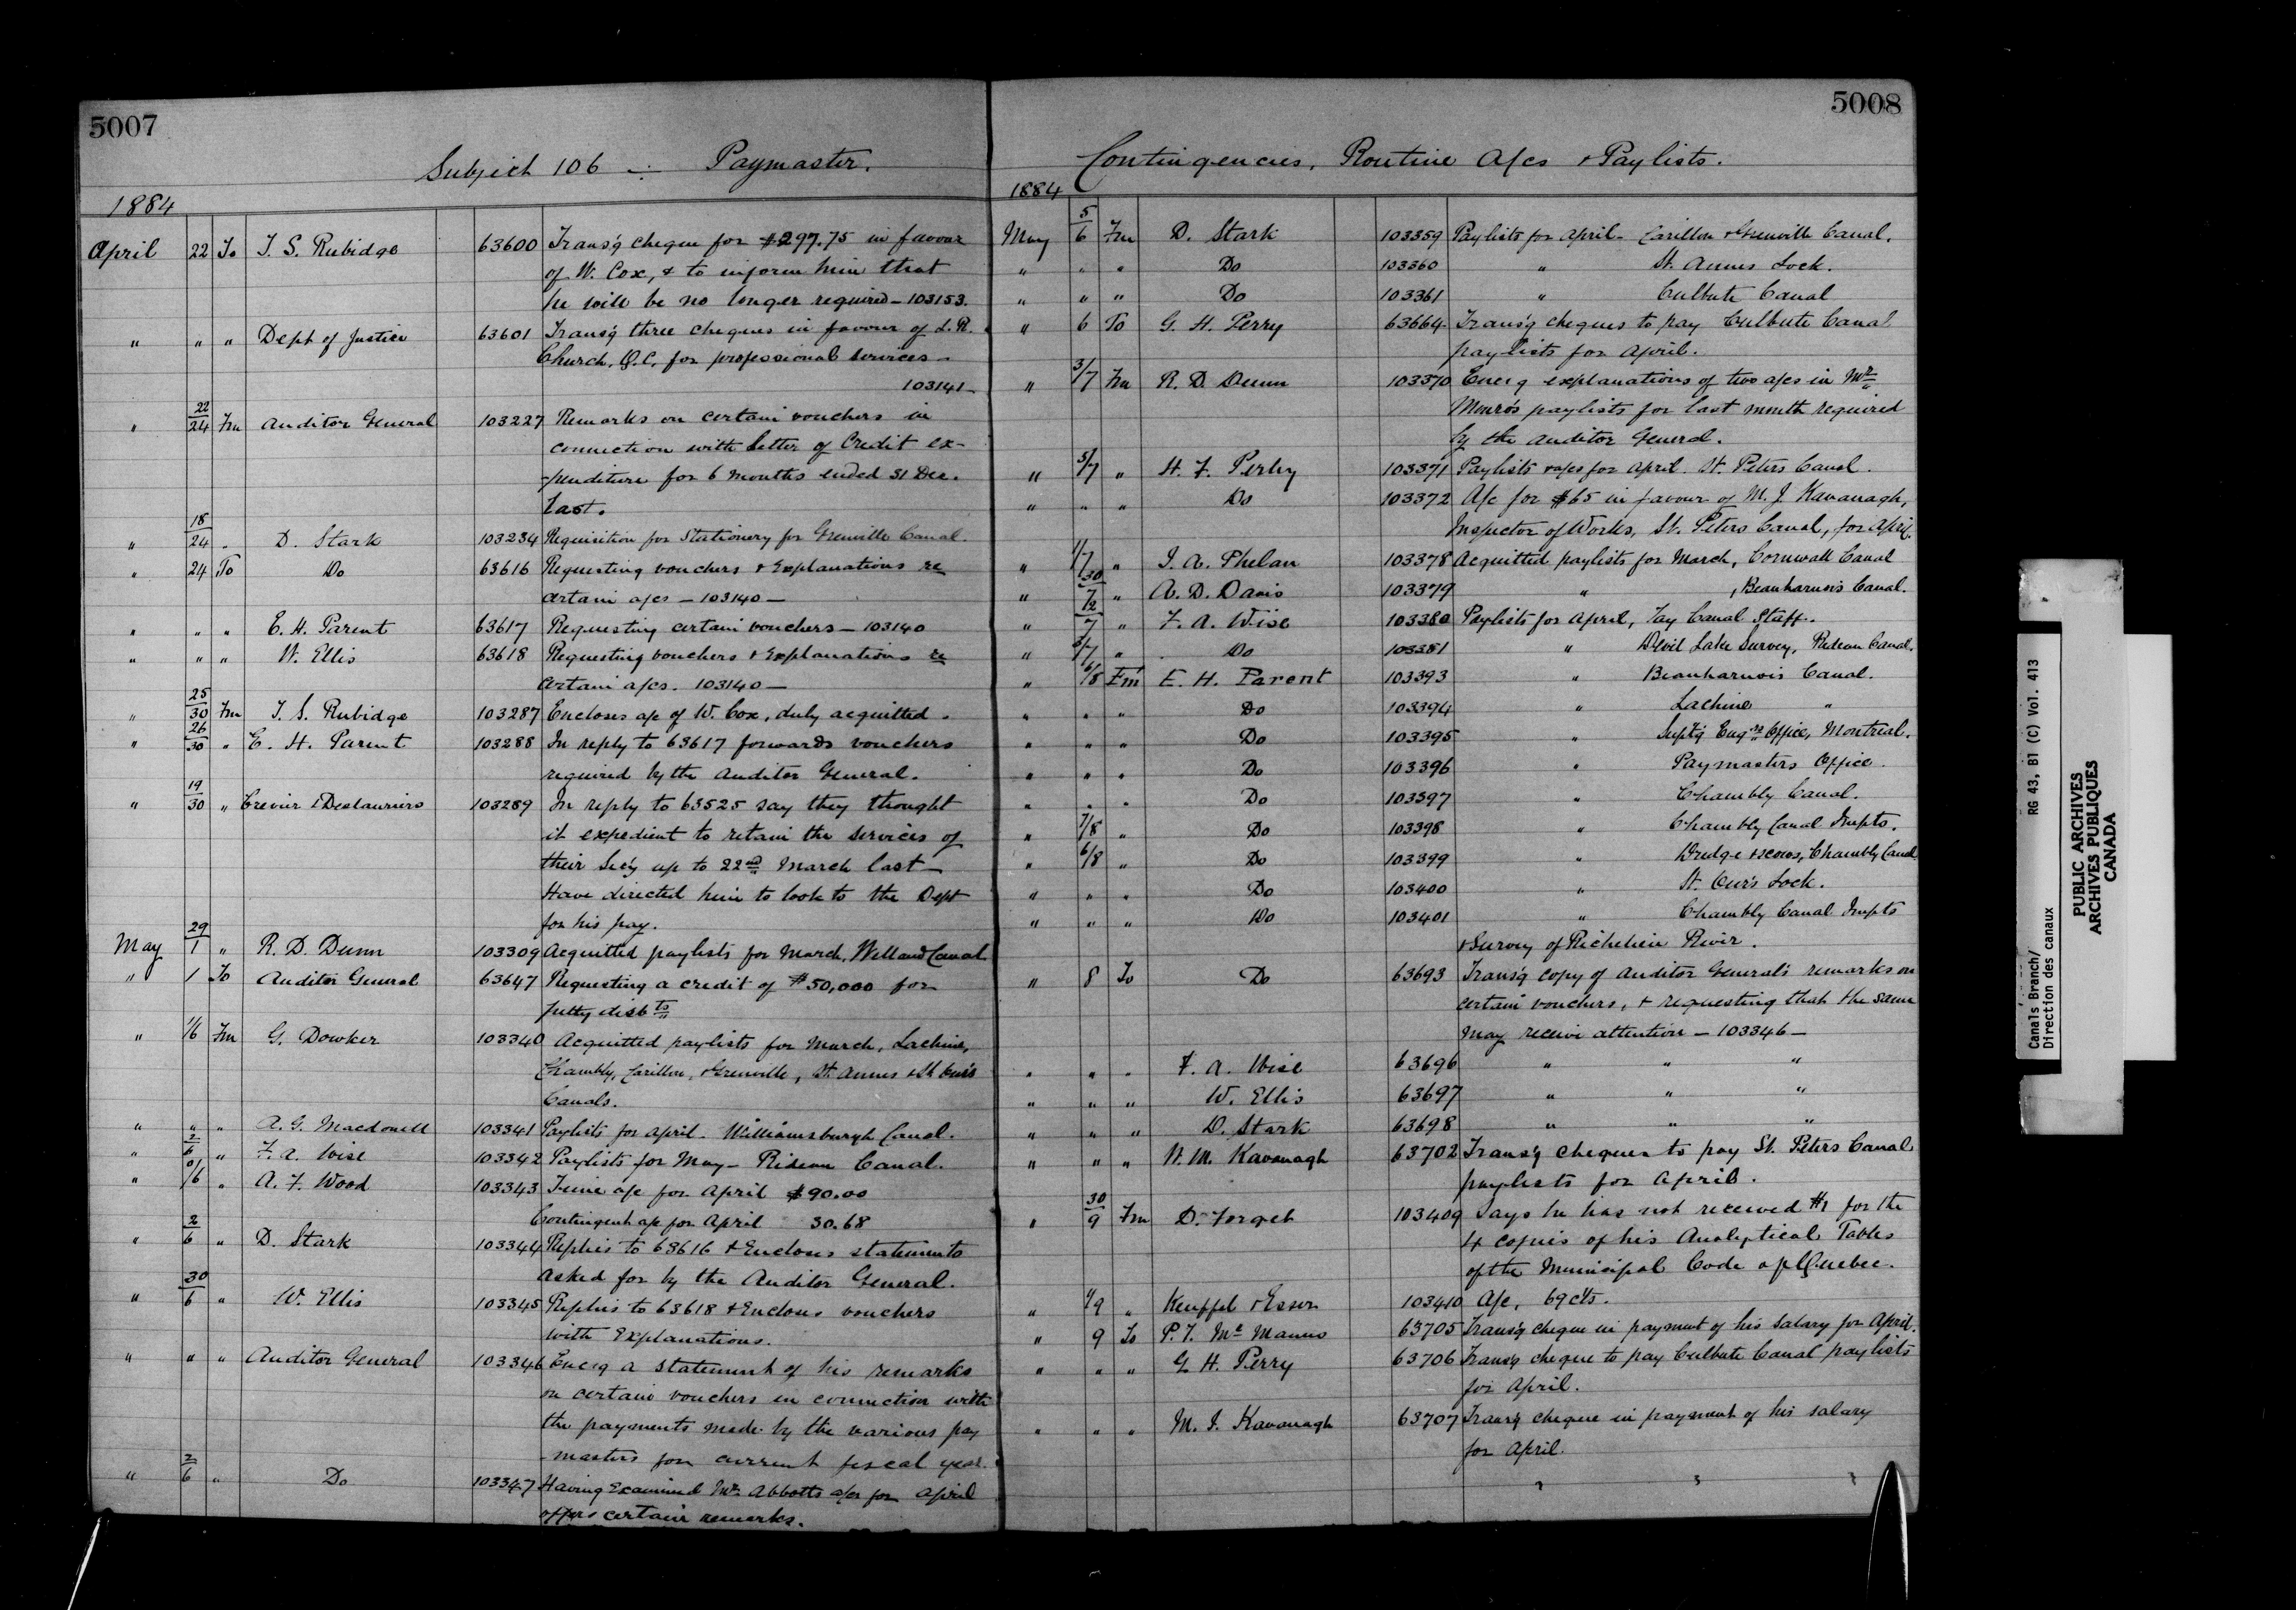 5007
Subject 106 Paymaster.
1884
April 22 To T. S. Rubidge 63600 Trans'g cheque for $297.75 in favour
of W. Cox, & to inform him that
he will be no longer required – 103153.
" " " Dept of Justice 63601 Trans'g three cheques in favour of L. R.
Church, Q.C. for professional services –
103141 –
" 22/24 Fm Auditor General 103227 Remarks on certain vouchers in
connection with letter of Credit ex-
-penditure for 6 months ended 31 Dec.
last.
" 18/24 " D. Stark 103234 Requisition for Stationery for Grenville Canal.
" 24 To Do 63616 Requesting vouchers & Explanations re
certain a/cs – 103140 –
" " " E. H. Parent 63617 Requesting certain vouchers – 103140
" " " W. Ellis 63618 Requesting vouchers & Explanations re
certain a/cs. 103140 –
" 25/30 Fm T. S. Rubidge 103287 Encloses a/c of W. Cox, duly acquitted.
" 26/30 " E. H. Parent 103288 In reply to 63617 forwards vouchers
required by the Auditor General.
" 19/30 " Crevier & Deslauriers 103289 In reply to 63525 say they thought
it expedient to retain the services of
their Sec'y up to 22nd March last –
Have directed him to look to the Dept
for his pay.
May 29/1 " R. D. Dunn 103309 Acquitted paylists for March, Welland Canal
" 1 To Auditor General 63647 Requesting a credit of $50,000 for
petty disbts
" 1/6 Fm G. Dowker 103340 Acquitted paylists for March, Lachine,
Chambly, Carillon, & Grenville, St. Annes & St Ours
Canals.
" " " A. G. Macdonell 103341 Paylists for April. Williamsburgh Canal.
" 2/6 " F. A. Wise 103342 Paylists for May – Rideau Canal.
" /6 " A. F. Wood 103343 a/c for April $90.00
Contingent a/c for April 30.68
" 2/6 " D. Stark 103344 Replies to 63616 & Encloses statements
asked for by the Auditor General.
" 30/6 " W. Ellis 103345 Replies to 63618 & Encloses vouchers
with Explanations.
" " " Auditor General 103346 Enc'g a statement of his remarks
on certain vouchers in connection with
the payments made by the various pay
-masters for current fiscal year.
" 2/6 " Do 103347 Having Examined Mr Abbotts a/cs for April
offers certain remarks.
5008
Contingencies, Routine A/cs & Paylists.
1884
May 5/6 Fm D. Stark 103359 Paylists for April – Carillon & Grenville Canal.
" " " Do 103360 " St. Annes Lock.
" " " Do 103361 " Culbute Canal
" 6 To G. H. Perry 63664 Trans'g cheques to pay Culbute Canal
paylists for April.
" 3/7 Fm R. D. Dunn 103370 Enc'g explanations of two a/cs in Mr
Monro's paylists for last month required
by the Auditor General.
" 5/7 " H. F. Perley 103371 Paylists & a/cs for April. St. Peters Canal.
" " " Do 103372 A/c for $65 in favour of M. J. Kavanagh,
Inspector of Works, St. Peters Canal, for April.
" 1/7 " J. A. Phelan 103378 Acquitted paylists for March, Cornwall Canal
" 30/7 " A. D. Davis 103379 " , Beauharnois Canal.
" 2/7 " F. A. Wise 103380 Paylists for April, Tay Canal Staff.
" 2/7 " Do 103381 " Devil Lake Survey, Rideau Canal.
" 6/8 Fm E. H. Parent 103393 " Beauharnois Canal.
" " " Do 103394 " Lachine "
" " " Do 103395 " Supt'g Engrs Office, Montreal.
" " " Do 103396 " Paymasters Office.
" " " Do 103397 " Chambly Canal.
" 7/8 " Do 103398 " Chambly Canal Impts.
" 6/8 " Do 103399 " Dredge & scows, Chambly Canal
" " " Do 103400 " St. Our's Lock.
" " " Do 103401 " Chambly Canal Impts
& Survey of Richelieu River.
" 8 To Do 63693 Trans'g copy of Auditor General's remarks on
certain vouchers, & requesting that the same
may receive attention – 103346 –
" " " F. A. Wise 63696 " " "
" " " W. Ellis 63697 " " "
" " " D. Stark 63698 " " "
" " " Kavanagh 63702 Trans'g cheques to pay St. Peters Canal
paylists for April.
" 30/9 Fm D. Forget 103409 Says he has not received $1 for the
4 copies of his Analytical Tables
of the Municipal Code of Quebec.
" /9 " Keuffel & Esser 103410 A/c, 69 cts.
" 9 To P. T. Mc Manus 63705 Trans'g cheque in payment of his salary for April.
" " " G H. Perry 63706 Trans'g cheque to pay Culbute Canal paylists
for April.
" " " M. J. Kavanagh 63707 Trans'g cheque in payment of his salary
for April.
Canals Branch/
Direction des canaux
RG 43, B1 (C) Vol. 413
PUBLIC ARCHIVES
ARCHIVES PUBLIQUES
CANADA